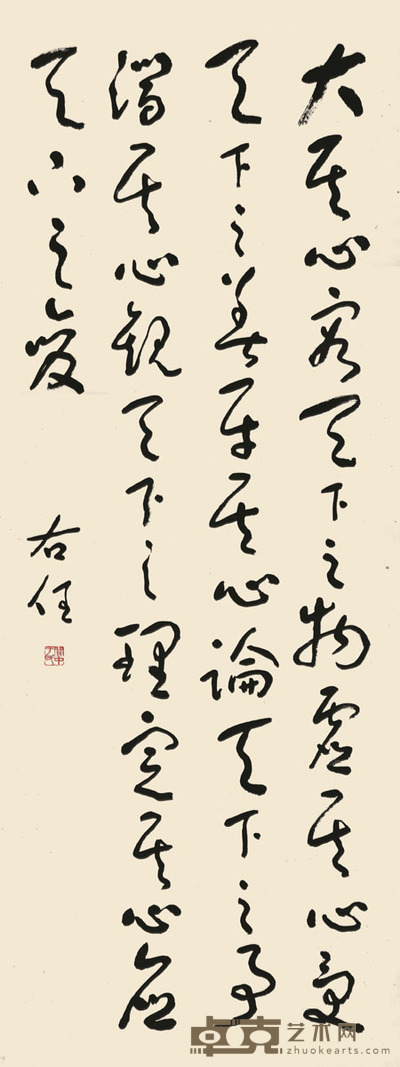 大其心容天下之物虛其心受
天下之善平其心論天下之事
潛其心觀天下之理定其心應
天下之變
右任
卓克艺术网
zhuokearts.com